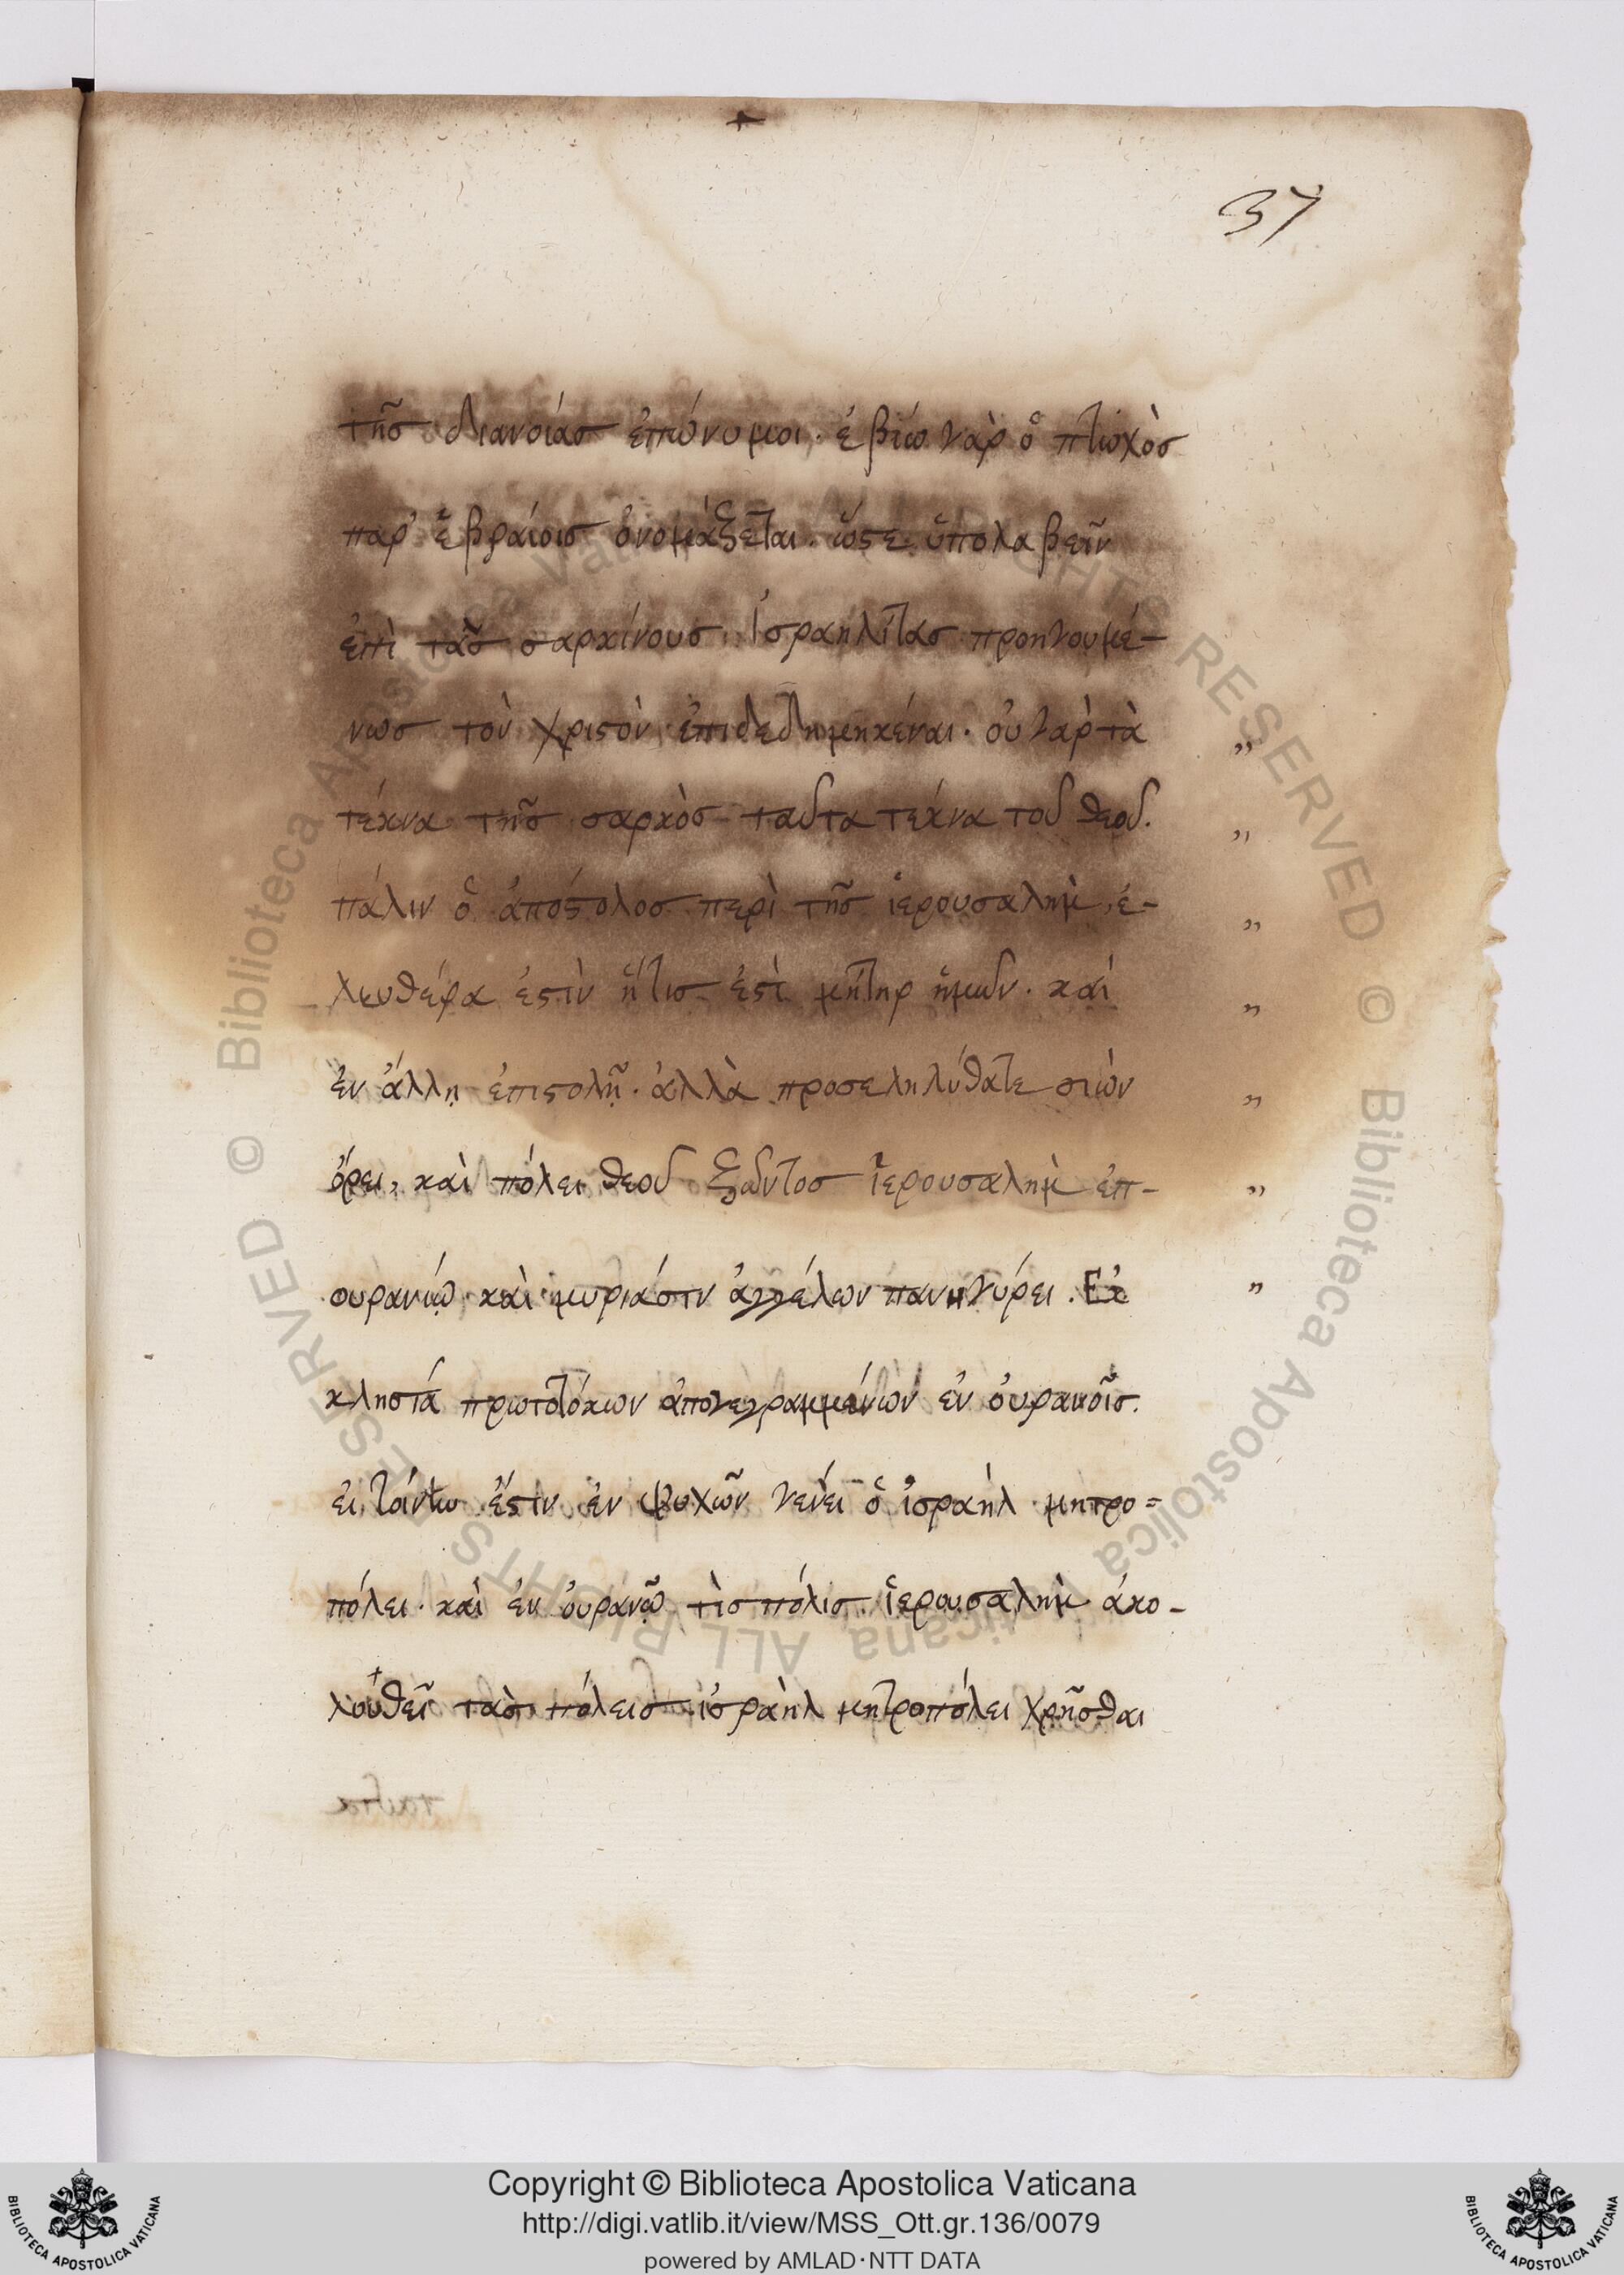 37
τῆσ διανοίασ ἐπώνυμοι. ἐβίω γὰρ ὁ πτωχὸσ
παρ' ἑβραίοισ ὀνομάζεται. ὥστε ὑπολαβεῖν
ἐπὶ τοὺσ σαρκίνουσ Ἰσραηλίτασ προηγουμέ-
νωσ τὸν χριστὸν ἐπιδεδημηκέναι. οὐ γὰρ τὰ „
τέκνα τῆσ σαρκὸσ ταῦτα τέκνα τοῦ θεοῦ. „
πάλιν ὁ ἀπόστολοσ περὶ τῆσ ἱερουσαλὴμ, ἐ- „
λευθέρα ἐστὶν ἥτισ ἐστὶ μήτηρ ἡμῶν. καὶ „
ἐν ἄλλῃ ἐπιστολῇ. ἀλλὰ προσεληλύθατε σιὼν „
ὄρει, καὶ πόλει θεοῦ ζῶντοσ ἱερουσαλὴμ ἐπ- „
ουρανίῳ. καὶ μυριάσιν ἀγγέλων πανηγύρει. Ἐκ „
κλησίᾳ πρωτοτόκων ἀπογεγραμμένων ἐν οὐρανοῖσ.
εἰ τοίνυν ἐστιν ἐν ψυχῶν γένει ὁ ἰσραὴλ μητρο=
πόλει. καὶ ἐν οὐρανῷ τὶσ πόλισ ἱερουσαλὴμ ἀκο-
λούθεῖ τὰσ πόλεισ ἰσραὴλ μητροπόλει χρῆσθαι
Copyright © Biblioteca Apostolica Vaticana
http://digi.vatlib.it/view/MSS_Ott.gr.136/0079
powered by AMLAD·NTT DATA
BIBLIOTECA APOSTOLICA VATICANA
BIBLIOTECA APOSTOLICA VATICANA
© Biblioteca Apostolica Vaticana ALL RIGHTS RESERVED
© Biblioteca Apostolica Vaticana ALL RIGHTS RESERVED